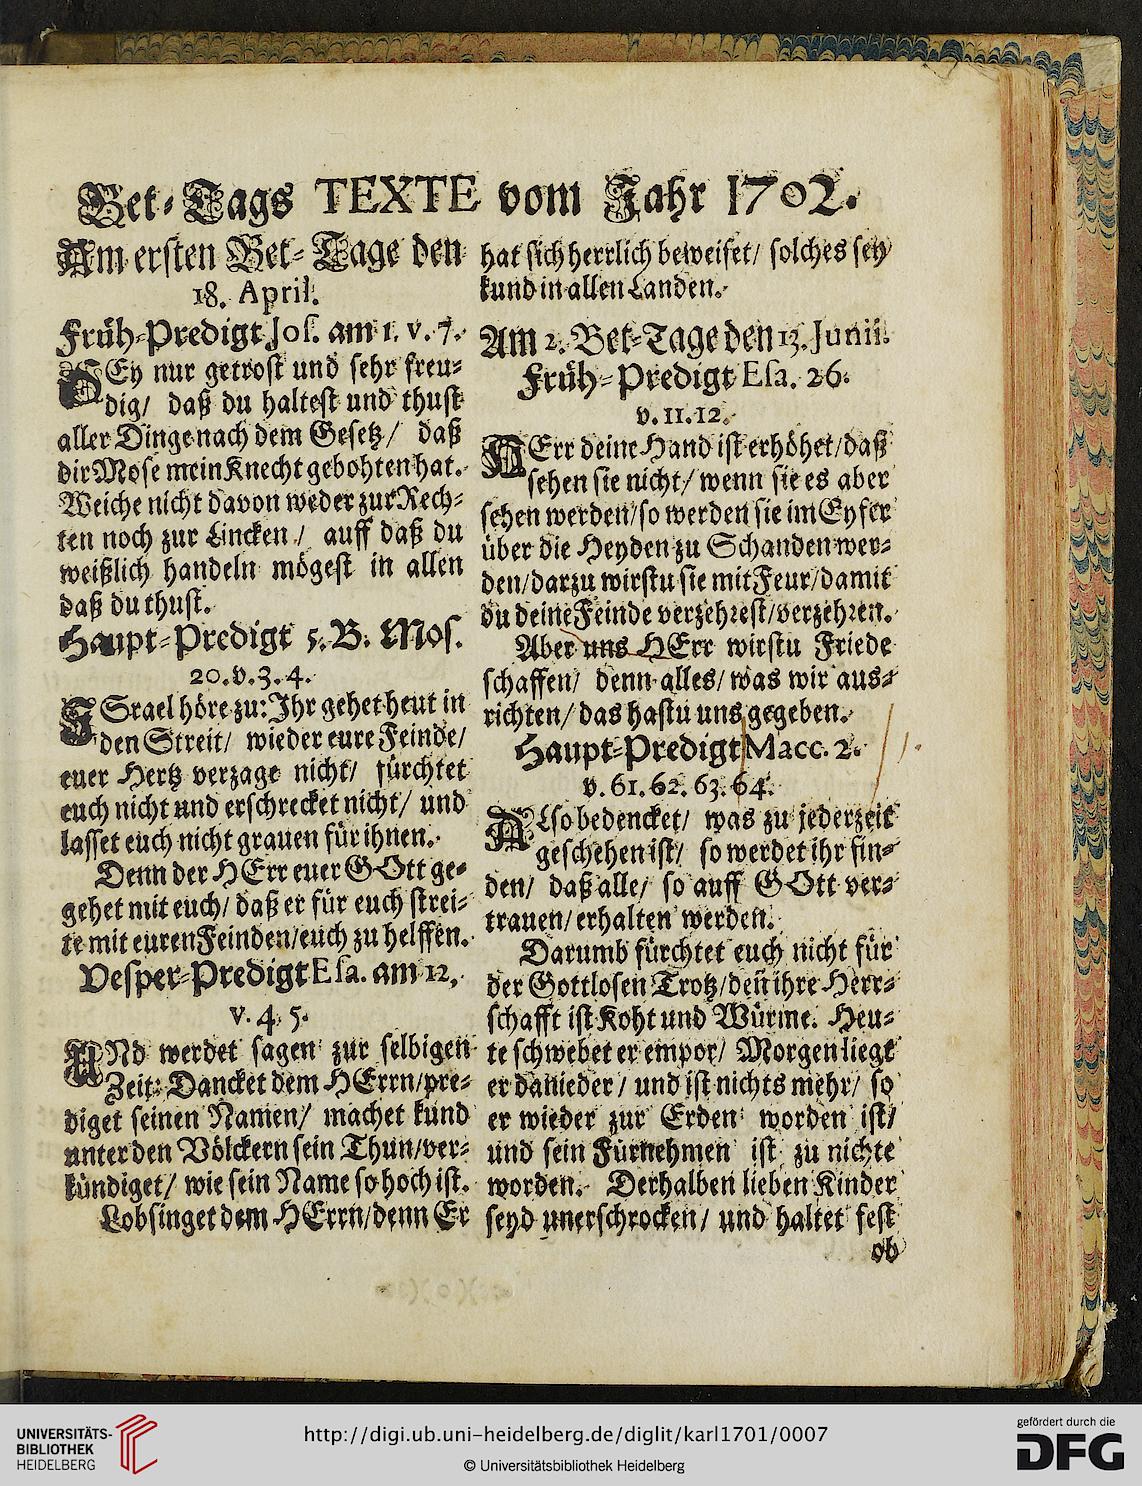 Bet-Tags TEXTE vom Jahr 1702.
Am ersten Bet-Tage den
18. April.
Früh-Predigt Jos. am 1. v. 7.
SEy nur getrost und sehr freu-
dig/ daß du haltest und thust
aller Dinge nach dem Gesetz/ daß
dir Mose mein Knecht gebohten hat.
Weiche nicht davon weder zur Rech-
ten noch zur Lincken/ auff daß du
weißlich handeln mögest in allen
daß du thust.
Haupt-Predigt 5. B. Mos.
20. v. 3. 4.
ISrael höre zu: Ihr gehet heut in
den Streit/ wieder eure Feinde/
euer Hertz verzage nicht/ fürchtet
euch nicht und erschrecket nicht/ und
lasset euch nicht grauen für ihnen.
Denn der HErr euer GOtt ge-
gehet mit euch/ daß er für euch strei-
te mit euren Feinden/ euch zu helffen.
Vesper-Predigt Esa. am 12,
v. 4. 5.
UNd werdet sagen zur selbigen
Zeit: Dancket dem HErrn/ pre-
diget seinen Namen/ machet kund
unter den Völckern sein Thun/ ver-
kündiget/ wie sein Name so hoch ist.
Lobsinget dem HErrn/ denn Er
hat sich herrlich beweiset/ solches sey
kund in allen Landen.
Am 2. Bet-Tage den 13. Junii.
Früh-Predigt Esa. 26.
v. 11. 12.
HErr deine Hand ist erhöhet/ daß
sehen sie nicht/ wenn sie es aber
sehen werden/ so werden sie im Eyfer
über die Heyden zu Schanden wer-
den/ darzu wirstu sie mit Feur/ damit
du deine Feinde verzehrest/ verzehren.
Aber uns HErr wirstu Friede
schaffen/ denn alles/ was wir aus-
richten/ das hastu uns gegeben.
Haupt-Predigt Macc. 2.
v. 61. 62. 63. 64.
ALso bedencket/ was zu jederzeit
geschehen ist/ so werdet ihr fin-
den/ daß alle/ so auff GOtt ver-
trauen/ erhalten werden.
Darumb fürchtet euch nicht für
der Gottlosen Trotz/ deñ ihre Herr-
schafft ist Koht und Würme. Heu-
te schwebet er empor/ Morgen liegt
er danieder/ und ist nichts mehr/ so
er wieder zur Erden worden ist/
und sein Fürnehmen ist zu nichte
worden. Derhalben lieben Kinder
seyd unerschrocken/ und haltet fest
ob
UNIVERSITÄTS-
BIBLIOTHEK
HEIDELBERG
http://digi.ub.uni-heidelberg.de/diglit/karl1701/0007
© Universitätsbibliothek Heidelberg
gefördert durch die
DFG